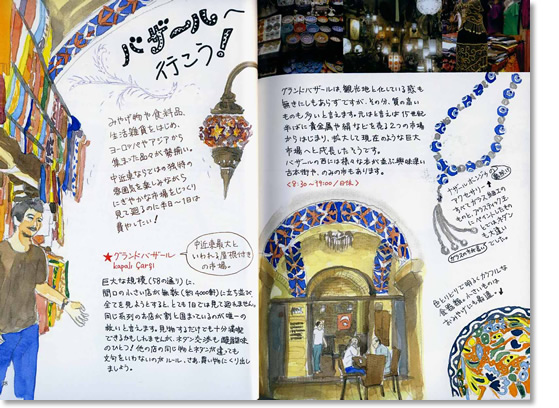 バザールへ
行こう!
みやげ物や食料品、
生活雑貨をはじめ、
ヨーロッパやアジアから
集まった品々が勢揃い。
中近東ならではの独特の
雰囲気を楽しみながら
にぎやかな市場をじっくり
見て廻るのに半日〜1日は
費やしたい!
★グランドバザール
kapalı Çarşı
中近東最大と
いわれる屋根付き
の市場。
巨大な規模(58の通り)に、
間口の小さい店が無数(約4000軒)に立ち並び
全てを見ようとすると、とても1日では見て廻れません。
同じ系列のお店が割と固まっているのが唯一の
救いと言えます。見物するだけでも十分満喫
できるかもしれませんが、ネダン交渉も醍醐味
のひとつ!他の店の同じ物とネダンが違っても
文句をいわないのがルール。さあ、買い物にくり出し
ましょう。
グランドバザールは、観光地と化している感も
無きにしもあらずですが、その分、質の高い
ものも多いと言えます。元はと言えば15世紀
半ばに貴金属や絹などを売る2つの市場
からはじまり、拡大して現在のような巨大
市場へと成長したそうです。
バザールの西には様々な本が並ぶ興味深い
古本街や、のみの市もあります。
<8:30〜19:00/日休>
ナザールボンジュウの
アクセサリー。
すべてガラス細工の
ものと、プラスティック玉
にペイントしたもの
とではネダン
も大違い
でした。
色とりどりで明るくカラフルな
食器類。小さいものは
おみやげにも最適。